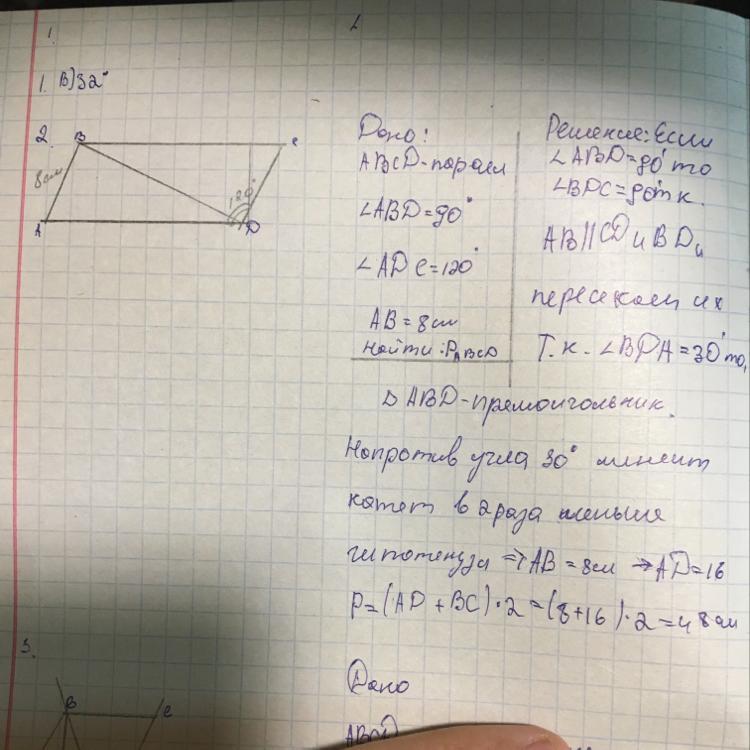 1.
1. В) 32°
2.
B
C
8 см
120°
A
D
Дано:
ABCD-парал
∠ABD=90°
∠ADC=120°
AB=8см
найти: PABCD
Решение: Если
∠ABD=90° то
∠BDC=90° т.к.
AB||CD и BD
пересекает их
Т.к. ∠BDA=30° то,
Δ ABD-прямоигольник.
Напротив угла 30°
катет в 2 раза меньше
гипотенуза ⇒ AB=8см ⇒ AD=16
P=(AD+BC)·2=(8+16)·2=48см
3.
B
C
Дано
ABCD